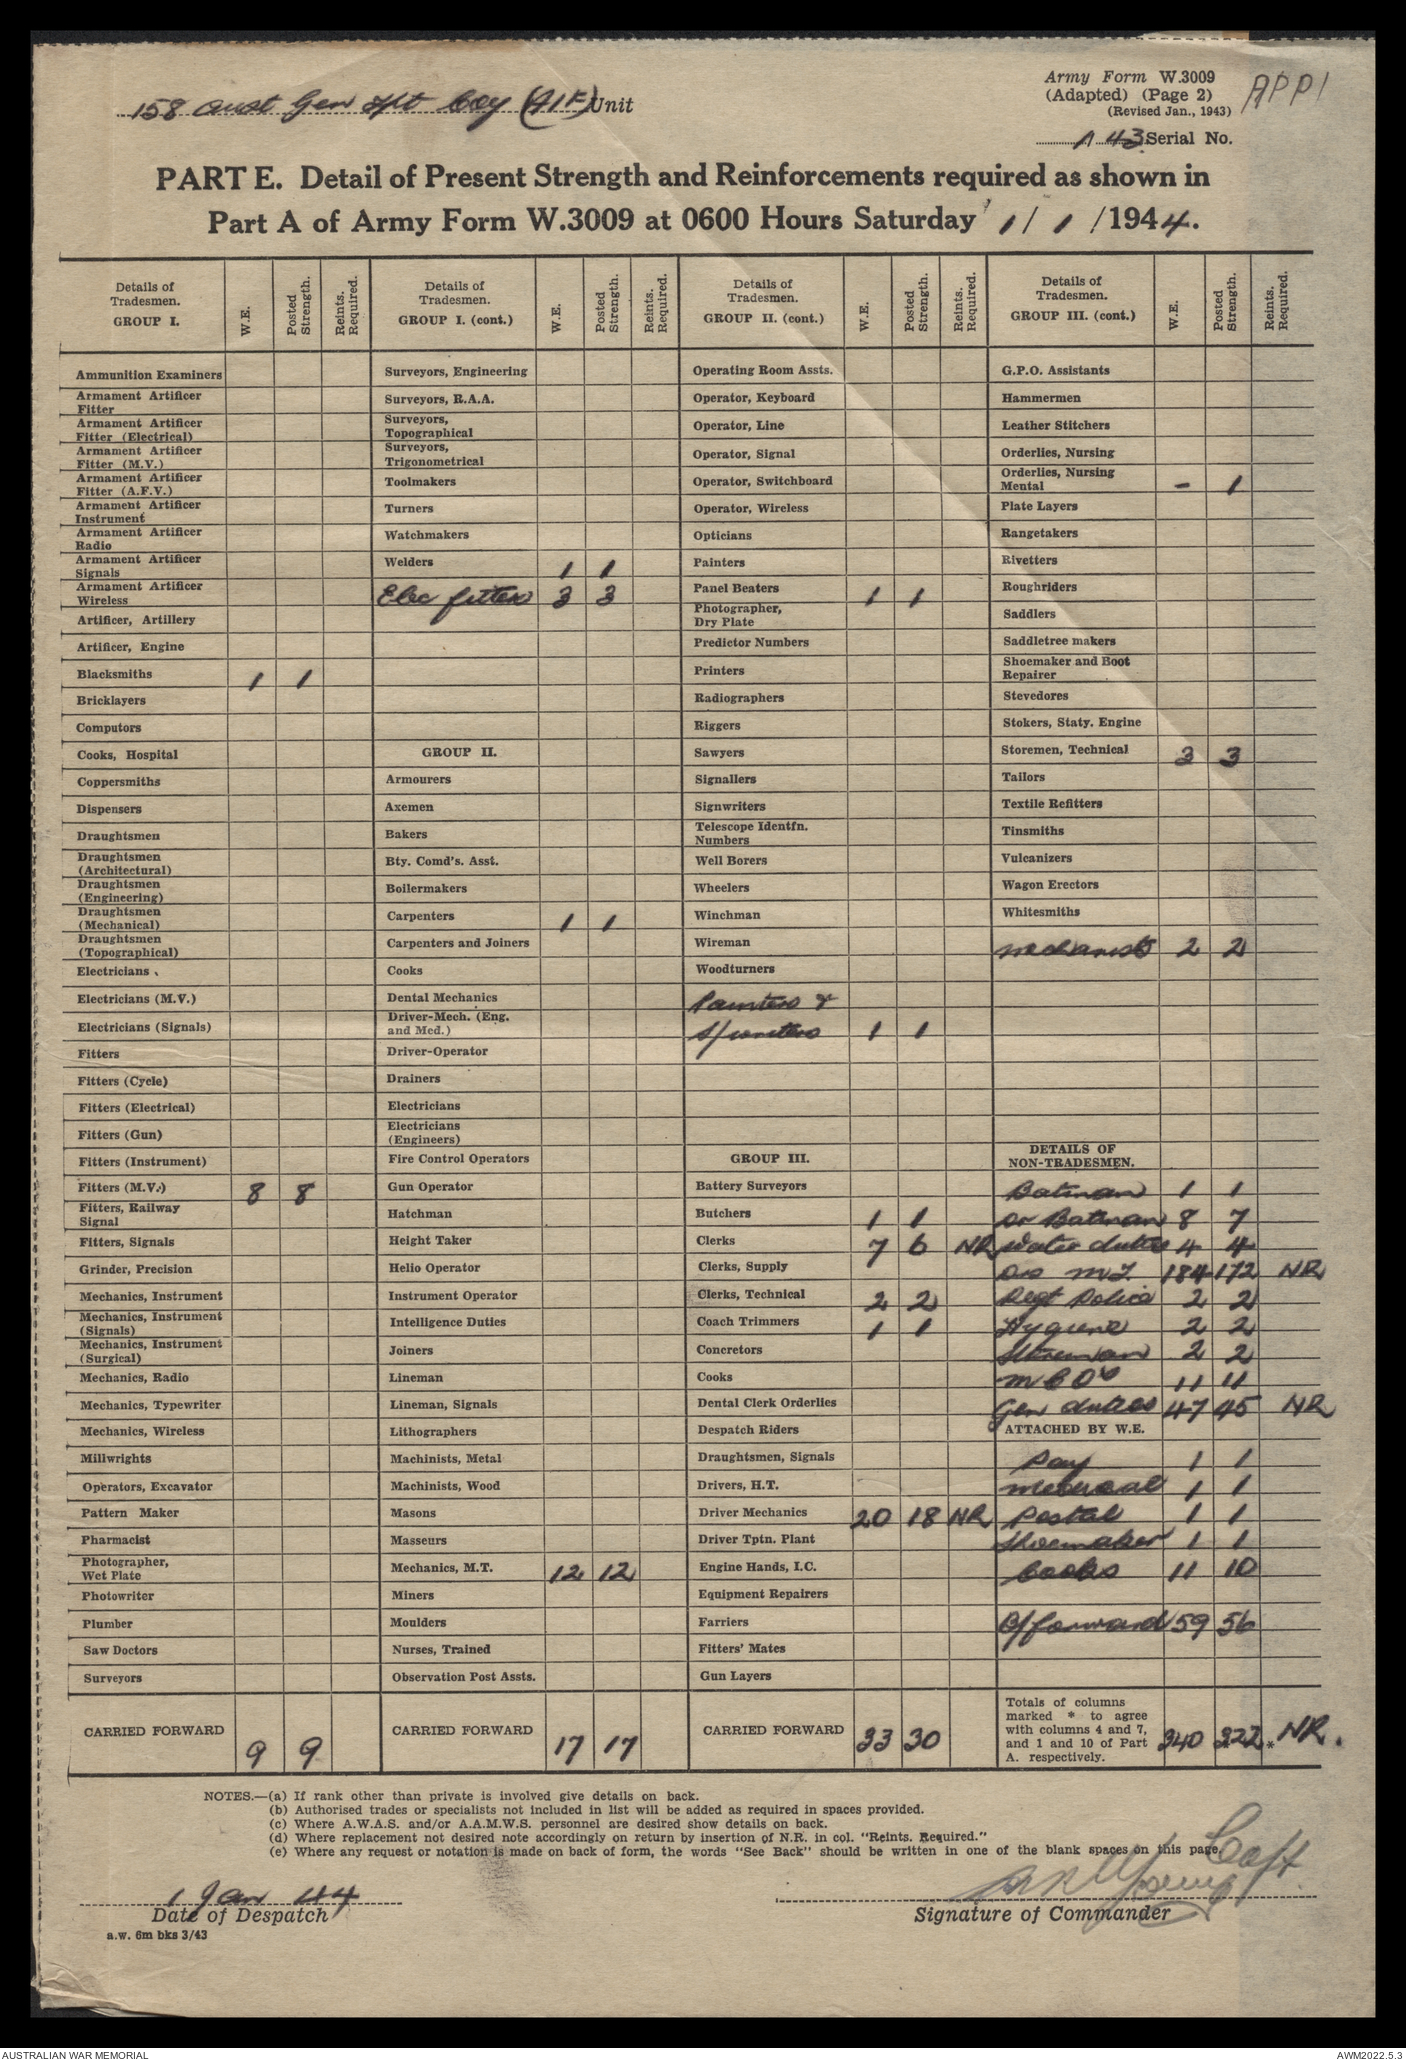 158 Aust Gen Tpt Coy (AIF) Unit
Army Form W.3009
(Adapted) (Page 2)
(Revised Jan., 1943)
APP 1
A 43 Serial No.
PART E. Detail of Present Strength and Reinforcements required as shown in
Part A of Army Form W.3009 at 0600 Hours Saturday 1 / 1 / 1944.
Details of Tradesmen. GROUP I. W.E. Posted Strength. Reints. Required.
Ammunition Examiners
Armament Artificer Fitter
Armament Artificer Fitter (Electrical)
Armament Artificer Fitter (M.V.)
Armament Artificer Fitter (A.F.V.)
Armament Artificer Instrument
Armament Artificer Radio
Armament Artificer Signals
Armament Artificer Wireless
Artificer, Artillery
Artificer, Engine
Blacksmiths 1 1
Bricklayers
Computors
Cooks, Hospital
Coppersmiths
Dispensers
Draughtsmen
Draughtsmen (Architectural)
Draughtsmen (Engineering)
Draughtsmen (Mechanical)
Draughtsmen (Topographical)
Electricians
Electricians (M.V.)
Electricians (Signals)
Fitters
Fitters (Cycle)
Fitters (Electrical)
Fitters (Gun)
Fitters (Instrument)
Fitters (M.V.) 8 8
Fitters, Railway Signal
Fitters, Signals
Grinder, Precision
Mechanics, Instrument
Mechanics, Instrument (Signals)
Mechanics, Instrument (Surgical)
Mechanics, Radio
Mechanics, Typewriter
Mechanics, Wireless
Millwrights
Operators, Excavator
Pattern Maker
Pharmacist
Photographer, Wet Plate
Photowriter
Plumber
Saw Doctors
Surveyors
CARRIED FORWARD 9 9
Details of Tradesmen. GROUP I. (cont.) W.E. Posted Strength. Reints. Required.
Surveyors, Engineering
Surveyors, R.A.A.
Surveyors, Topographical
Surveyors, Trigonometrical
Toolmakers
Turners
Watchmakers
Welders 1 1
Elec fitters 3 3
GROUP II.
Armourers
Axemen
Bakers
Bty. Comd's. Asst.
Boilermakers
Carpenters 1 1
Carpenters and Joiners
Cooks
Dental Mechanics
Driver-Mech. (Eng. and Med.)
Driver-Operator
Drainers
Electricians
Electricians (Engineers)
Fire Control Operators
Gun Operator
Hatchman
Height Taker
Helio Operator
Instrument Operator
Intelligence Duties
Joiners
Lineman
Lineman, Signals
Lithographers
Machinists, Metal
Machinists, Wood
Masons
Masseurs
Mechanics, M.T. 12 12
Miners
Moulders
Nurses, Trained
Observation Post Assts.
CARRIED FORWARD 17 17
Details of Tradesmen. GROUP II. (cont.) W.E. Posted Strength. Reints. Required.
Operating Room Assts.
Operator, Keyboard
Operator, Line
Operator, Signal
Operator, Switchboard
Operator, Wireless
Opticians
Painters
Panel Beaters 1 1
Photographer, Dry Plate
Predictor Numbers
Printers
Radiographers
Riggers
Sawyers
Signallers
Signwriters
Telescope Identfn. Numbers
Well Borers
Wheelers
Winchman
Wireman
Woodturners
Painters &
S/writers 1 1
GROUP III.
Battery Surveyors
Butchers 1 1
Clerks 7 6 NR
Clerks, Supply
Clerks, Technical 2 2
Coach Trimmers 1 1
Concretors
Cooks
Dental Clerk Orderlies
Despatch Riders
Draughtsmen, Signals
Drivers, H.T.
Driver Mechanics 20 18 NR
Driver Tptn. Plant
Engine Hands, I.C.
Equipment Repairers
Farriers
Fitters' Mates
Gun Layers
CARRIED FORWARD 33 30
Details of Tradesmen. GROUP III. (cont.) W.E. Posted Strength. Reints. Required.
G.P.O. Assistants
Hammermen
Leather Stitchers
Orderlies, Nursing
Orderlies, Nursing Mental - 1
Plate Layers
Rangetakers
Rivetters
Roughriders
Saddlers
Saddletree makers
Shoemaker and Boot Repairer
Stevedores
Stokers, Staty. Engine
Storemen, Technical 3 3
Tailors
Textile Refitters
Tinsmiths
Vulcanizers
Wagon Erectors
Whitesmiths
Mechanists 2 2
DETAILS OF NON-TRADESMEN.
Batman 1 1
Dr Batman 8 7
Water duties 4 4
Drs M.T. 184 172 NR
Regt Police 2 2
Hygiene 2 2
Storeman 2 2
NCO's 11 11
Gen duties 47 45 NR
ATTACHED BY W.E.
Pay 1 1
Medical 1 1
Postal 1 1
Shoemaker 1 1
Cooks 11 10
B/forward 59 56
Totals of columns marked * to agree with columns 4 and 7, and 1 and 10 of Part A. respectively. 340 322 * NR.
NOTES.—(a) If rank other than private is involved give details on back.
(b) Authorised trades or specialists not included in list will be added as required in spaces provided.
(c) Where A.W.A.S. and/or A.A.M.W.S. personnel are desired show details on back.
(d) Where replacement not desired note accordingly on return by insertion of N.R. in col. "Reints. Required."
(e) Where any request or notation is made on back of form, the words "See Back" should be written in one of the blank spaces on this page.
1 Jan 44
Date of Despatch
Young Capt.
Signature of Commander
a.w. 6m bks 3/43
AUSTRALIAN WAR MEMORIAL
AWM2022.5.3